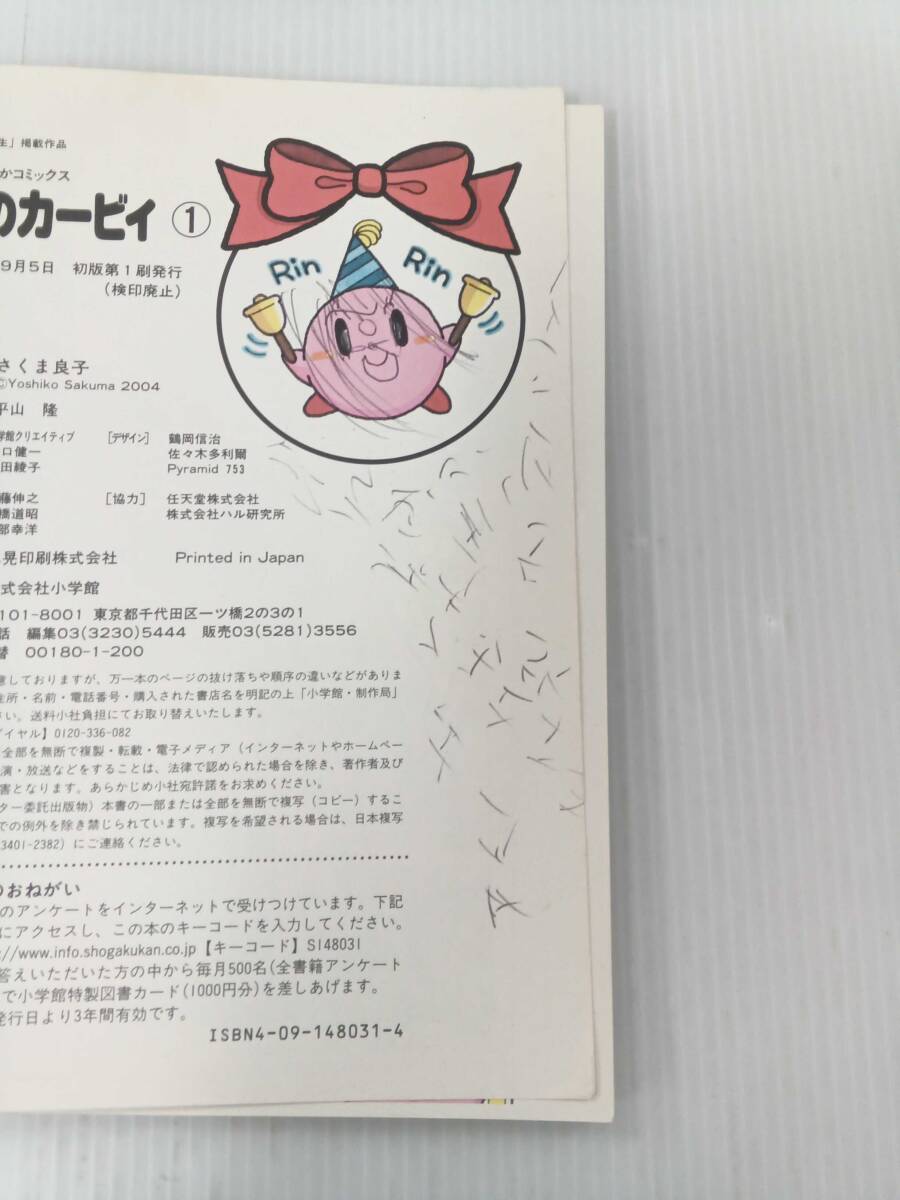 生」掲載作品
かコミックス
のカービィ ①
9月5日 初版第1刷発行
(検印廃止)
Rin Rin
さくま良子
©Yoshiko Sakuma 2004
平山 隆
学館クリエイティブ [デザイン] 鶴岡信治
口健一 佐々木多利爾
田綾子 Pyramid 753
藤伸之 [協力] 任天堂株式会社
橋道昭 株式会社ハル研究所
部幸洋
晃印刷株式会社 Printed in Japan
式会社小学館
101-8001 東京都千代田区一ツ橋2の3の1
話 編集03(3230)5444 販売03(5281)3556
替 00180-1-200
意しておりますが、万一本のページの抜け落ちや順序の違いなどがありま
住所・名前・電話番号・購入された書店名を明記の上「小学館・制作局」
さい。送料小社負担にてお取り替えいたします。
ダイヤル】0120-336-082
全部を無断で複製・転載・電子メディア(インターネットやホームペー
演・放送などをすることは、法律で認められた場合を除き、著作者及び
害となります。あらかじめ小社宛許諾をお求めください。
ター委託出版物)本書の一部または全部を無断で複写(コピー)するこ
での例外を除き禁じられています。複写を希望される場合は、日本複写
3401-2382)にご連絡ください。
のおねがい
のアンケートをインターネットで受けつけています。下記
にアクセスし、この本のキーコードを入力してください。
://www.info.shogakukan.co.jp【キーコード】S148031
答えいただいた方の中から毎月500名(全書籍アンケート
で小学館特製図書カード(1000円分)を差しあげます。
発行日より3年間有効です。
ISBN4-09-148031-4